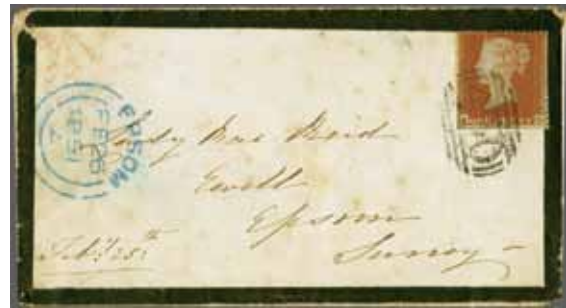 EPSOM
FE 26
1851
Lady
Ewell
Epsom
Surrey -
Feby 25th